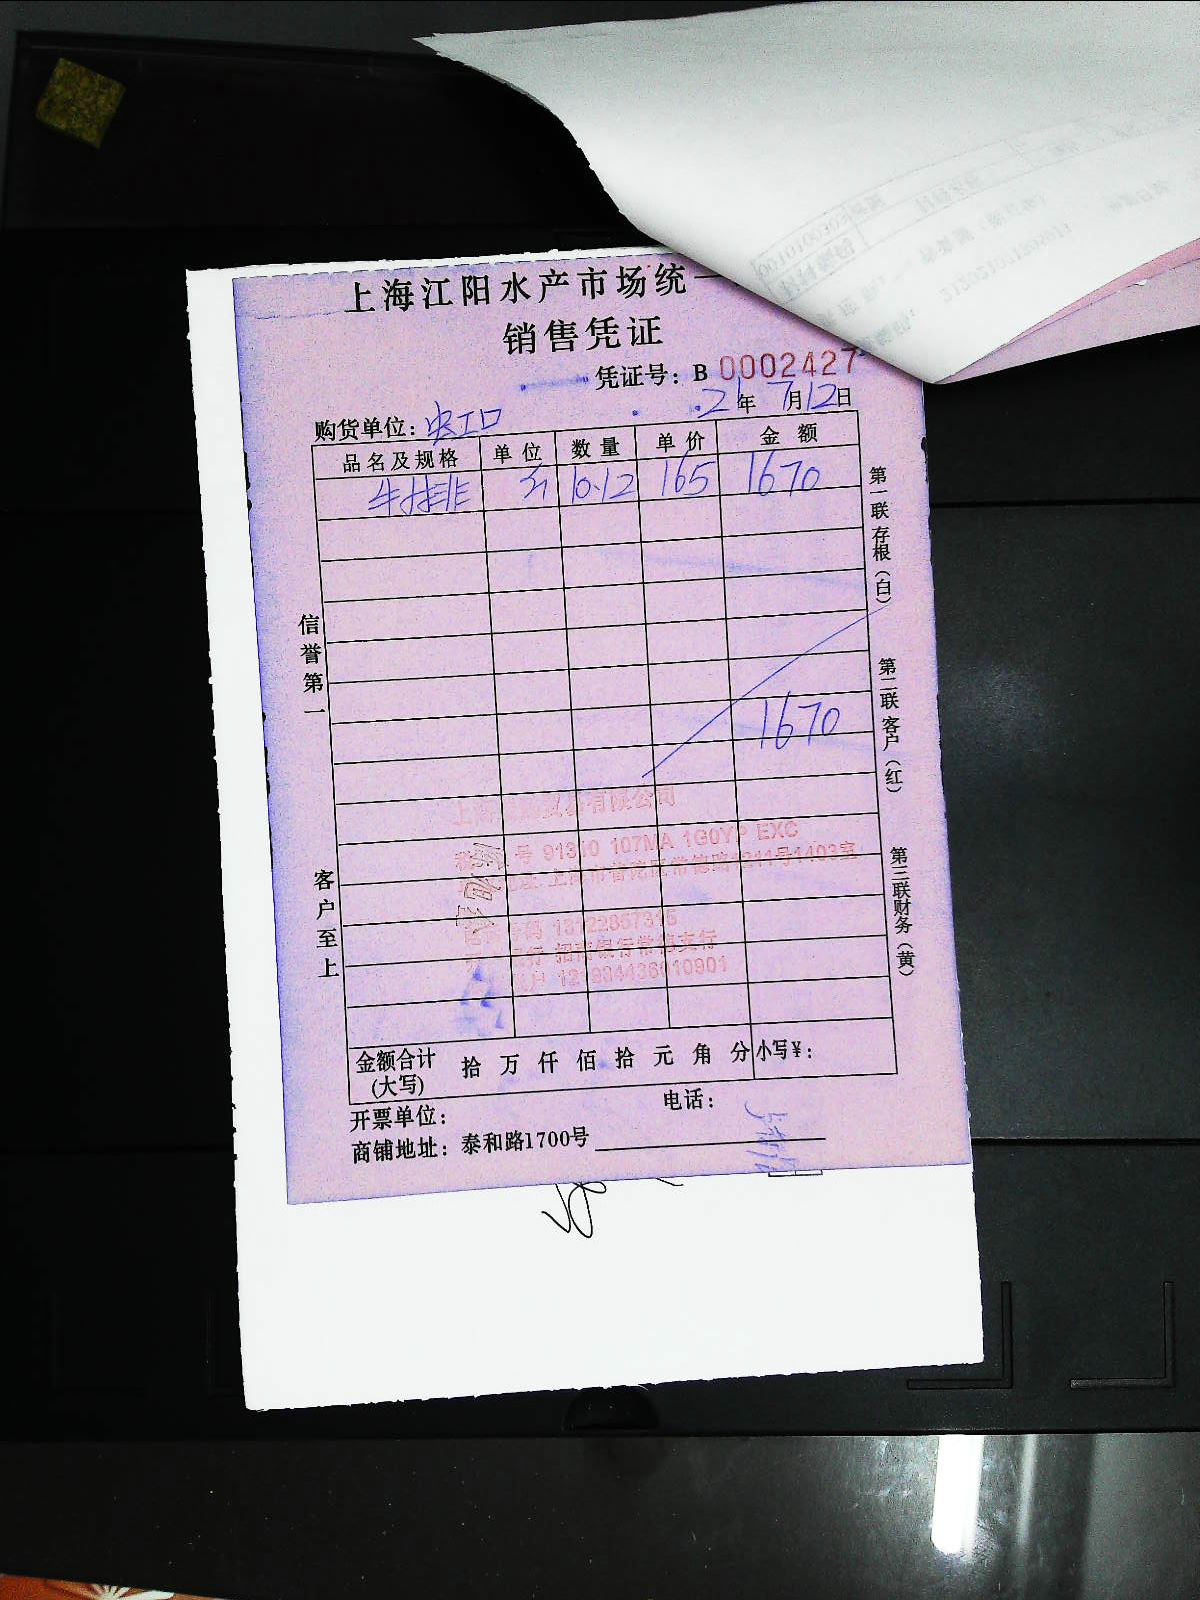 上海江阳水产市场统一
销售凭证
凭证号：B 0002427
21年 7月12日
购货单位：虹口
品名及规格 单位 数量 单价 金额
牛排 斤 10.12 165 1670
1670
信誉第一
客户至上
第一联存根（白）
第二联客户（红）
第三联财务（黄）
有限公司
号 91310 107MA 1G0YP EXC
上海市普陀区常德路1211号1403室
招商银行常德支行
金额合计(大写) 拾 万 仟 佰 拾 元 角 分 小写¥：
开票单位： 电话：
商铺地址：泰和路1700号